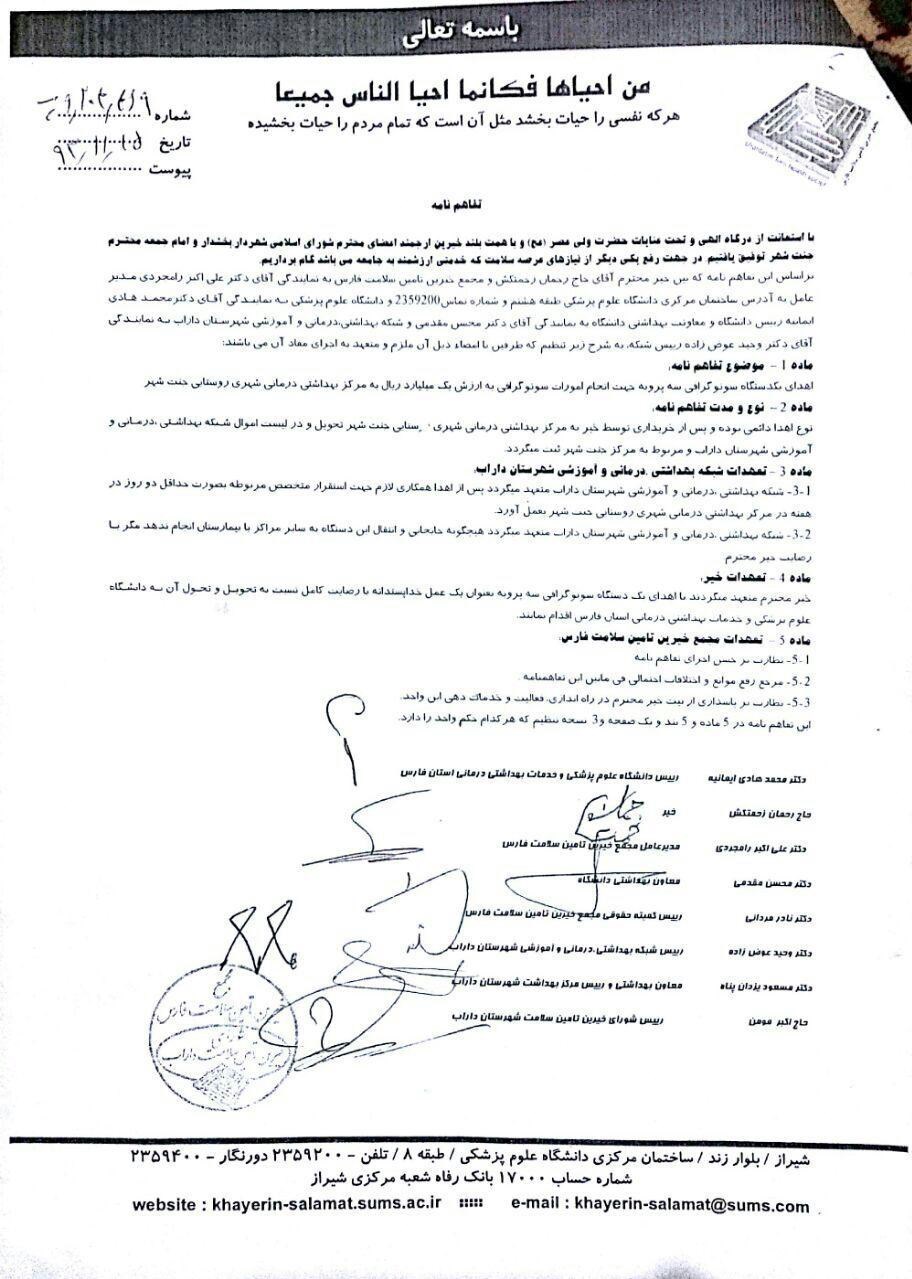 باسمه تعالی
من احیاها فکانما احیا الناس جمیعا
هرکه نفسی را حیات بخشد مثل آن است که تمام مردم را حیات بخشیده
شماره
تاریخ
پیوست
تفاهم نامه
با استعانت از درگاه الهی و تحت عنایات حضرت ولی عصر (عج) و با همت بلند خیرین ارجمند اعضای محترم شورای اسلامی شهردار بخشدار و امام جمعه محترم
جنت شهر توفیق یافتیم در جهت رفع یکی دیگر از نیازهای عرصه سلامت که خدمتی ارزشمند به جامعه می باشد گام برداریم.
براساس این تفاهم نامه که بین خیر محترم آقای حاج رحمان زحمتکش و مجمع خیرین تامین سلامت فارس به نمایندگی آقای دکتر علی اکبر رامجردی مدیر
عامل به آدرس ساختمان مرکزی دانشگاه علوم پزشکی طبقه هشتم و شماره تماس2359200 و دانشگاه علوم پزشکی به نمایندگی آقای دکترمحمد هادی
ایمانیه رییس دانشگاه و معاونت بهداشتی دانشگاه به نمایندگی آقای دکتر محسن مقدمی و شبکه بهداشتی،درمانی و آموزشی شهرستان داراب به نمایندگی
آقای دکتر وحید عوض زاده رییس شبکه، به شرح زیر تنظیم که طرفین با امضاء ذیل آن ملزم و متعهد به اجرای مفاد آن می باشند:
ماده 1 - موضوع تفاهم نامه:
اهدای یکدستگاه سونوگرافی سه پروبه جهت انجام امورات سونوگرافی به ارزش یک میلیارد ریال به مرکز بهداشتی درمانی شهری روستایی جنت شهر
ماده 2 - نوع و مدت تفاهم نامه:
نوع اهدا دائمی بوده و پس از خریداری توسط خیر به مرکز بهداشتی درمانی شهری ستایی جنت شهر تحویل و در لیست اموال شبکه بهداشتی ،درمانی و
آموزشی شهرستان داراب و مربوط به مرکز جنت شهر ثبت میگردد.
ماده 3 - تعهدات شبکه بهداشتی ،درمانی و آموزشی شهرستان داراب:
3-1- شبکه بهداشتی ،درمانی و آموزشی شهرستان داراب متعهد میگردد پس از اهدا همکاری لازم جهت استقرار متخصص مربوطه بصورت حداقل دو روز در
هفته در مرکز بهداشتی درمانی شهری روستایی جنت شهر بعمل آورد.
3-2- شبکه بهداشتی ،درمانی و آموزشی شهرستان داراب متعهد میگردد هیچگونه جابجایی و انتقال این دستگاه به سایر مراکز یا بیمارستان انجام ندهد مگر با
رضایت خیر محترم
ماده 4 - تعهدات خیر:
خیر محترم متعهد میگردند با اهدای یک دستگاه سونوگرافی سه پروبه بعنوان یک عمل خداپسندانه با رضایت کامل نسبت به تحویل و تحول آن به دانشگاه
علوم پزشکی و خدمات بهداشتی درمانی استان فارس اقدام نمایند.
ماده 5 - تعهدات مجمع خیرین تامین سلامت فارس:
5-1- نظارت بر حسن اجرای تفاهم نامه
5-2- مرجع رفع موانع و اختلافات احتمالی فی مابین این تفاهمنامه .
5-3- نظارت بر پاسداری از نیت خیر محترم در راه اندازی، فعالیت و خدمات دهی این واحد.
این تفاهم نامه در 5 ماده و 5 بند و یک صفحه و3 نسخه تنظیم که هرکدام حکم واحد را دارد.
دکتر محمد هادی ایمانیه رییس دانشگاه علوم پزشکی و خدمات بهداشتی درمانی استان فارس
حاج رحمان زحمتکش خیر
دکتر علی اکبر رامجردی مدیرعامل مجمع خیرین تامین سلامت فارس
دکتر محسن مقدمی معاون بهداشتی دانشگاه
دکتر نادر مردانی رییس کمیته حقوقی مجمع خیرین تامین سلامت فارس
دکتر وحید عوض زاده رییس شبکه بهداشتی،درمانی و آموزشی شهرستان داراب
دکتر مسعود یزدان پناه معاون بهداشتی و رییس مرکز بهداشت شهرستان داراب
حاج اکبر مومن رییس شورای خیرین تامین سلامت شهرستان داراب
شیراز / بلوار زند / ساختمان مرکزی دانشگاه علوم پزشکی / طبقه ۸ / تلفن - ۲۳۵۹۲۰۰ دورنگار - ۲۳۵۹۴۰۰
شماره حساب ۱۷۰۰۰ بانک رفاه شعبه مرکزی شیراز
website : khayerin-salamat.sums.ac.ir ::::: e-mail : khayerin-salamat@sums.com